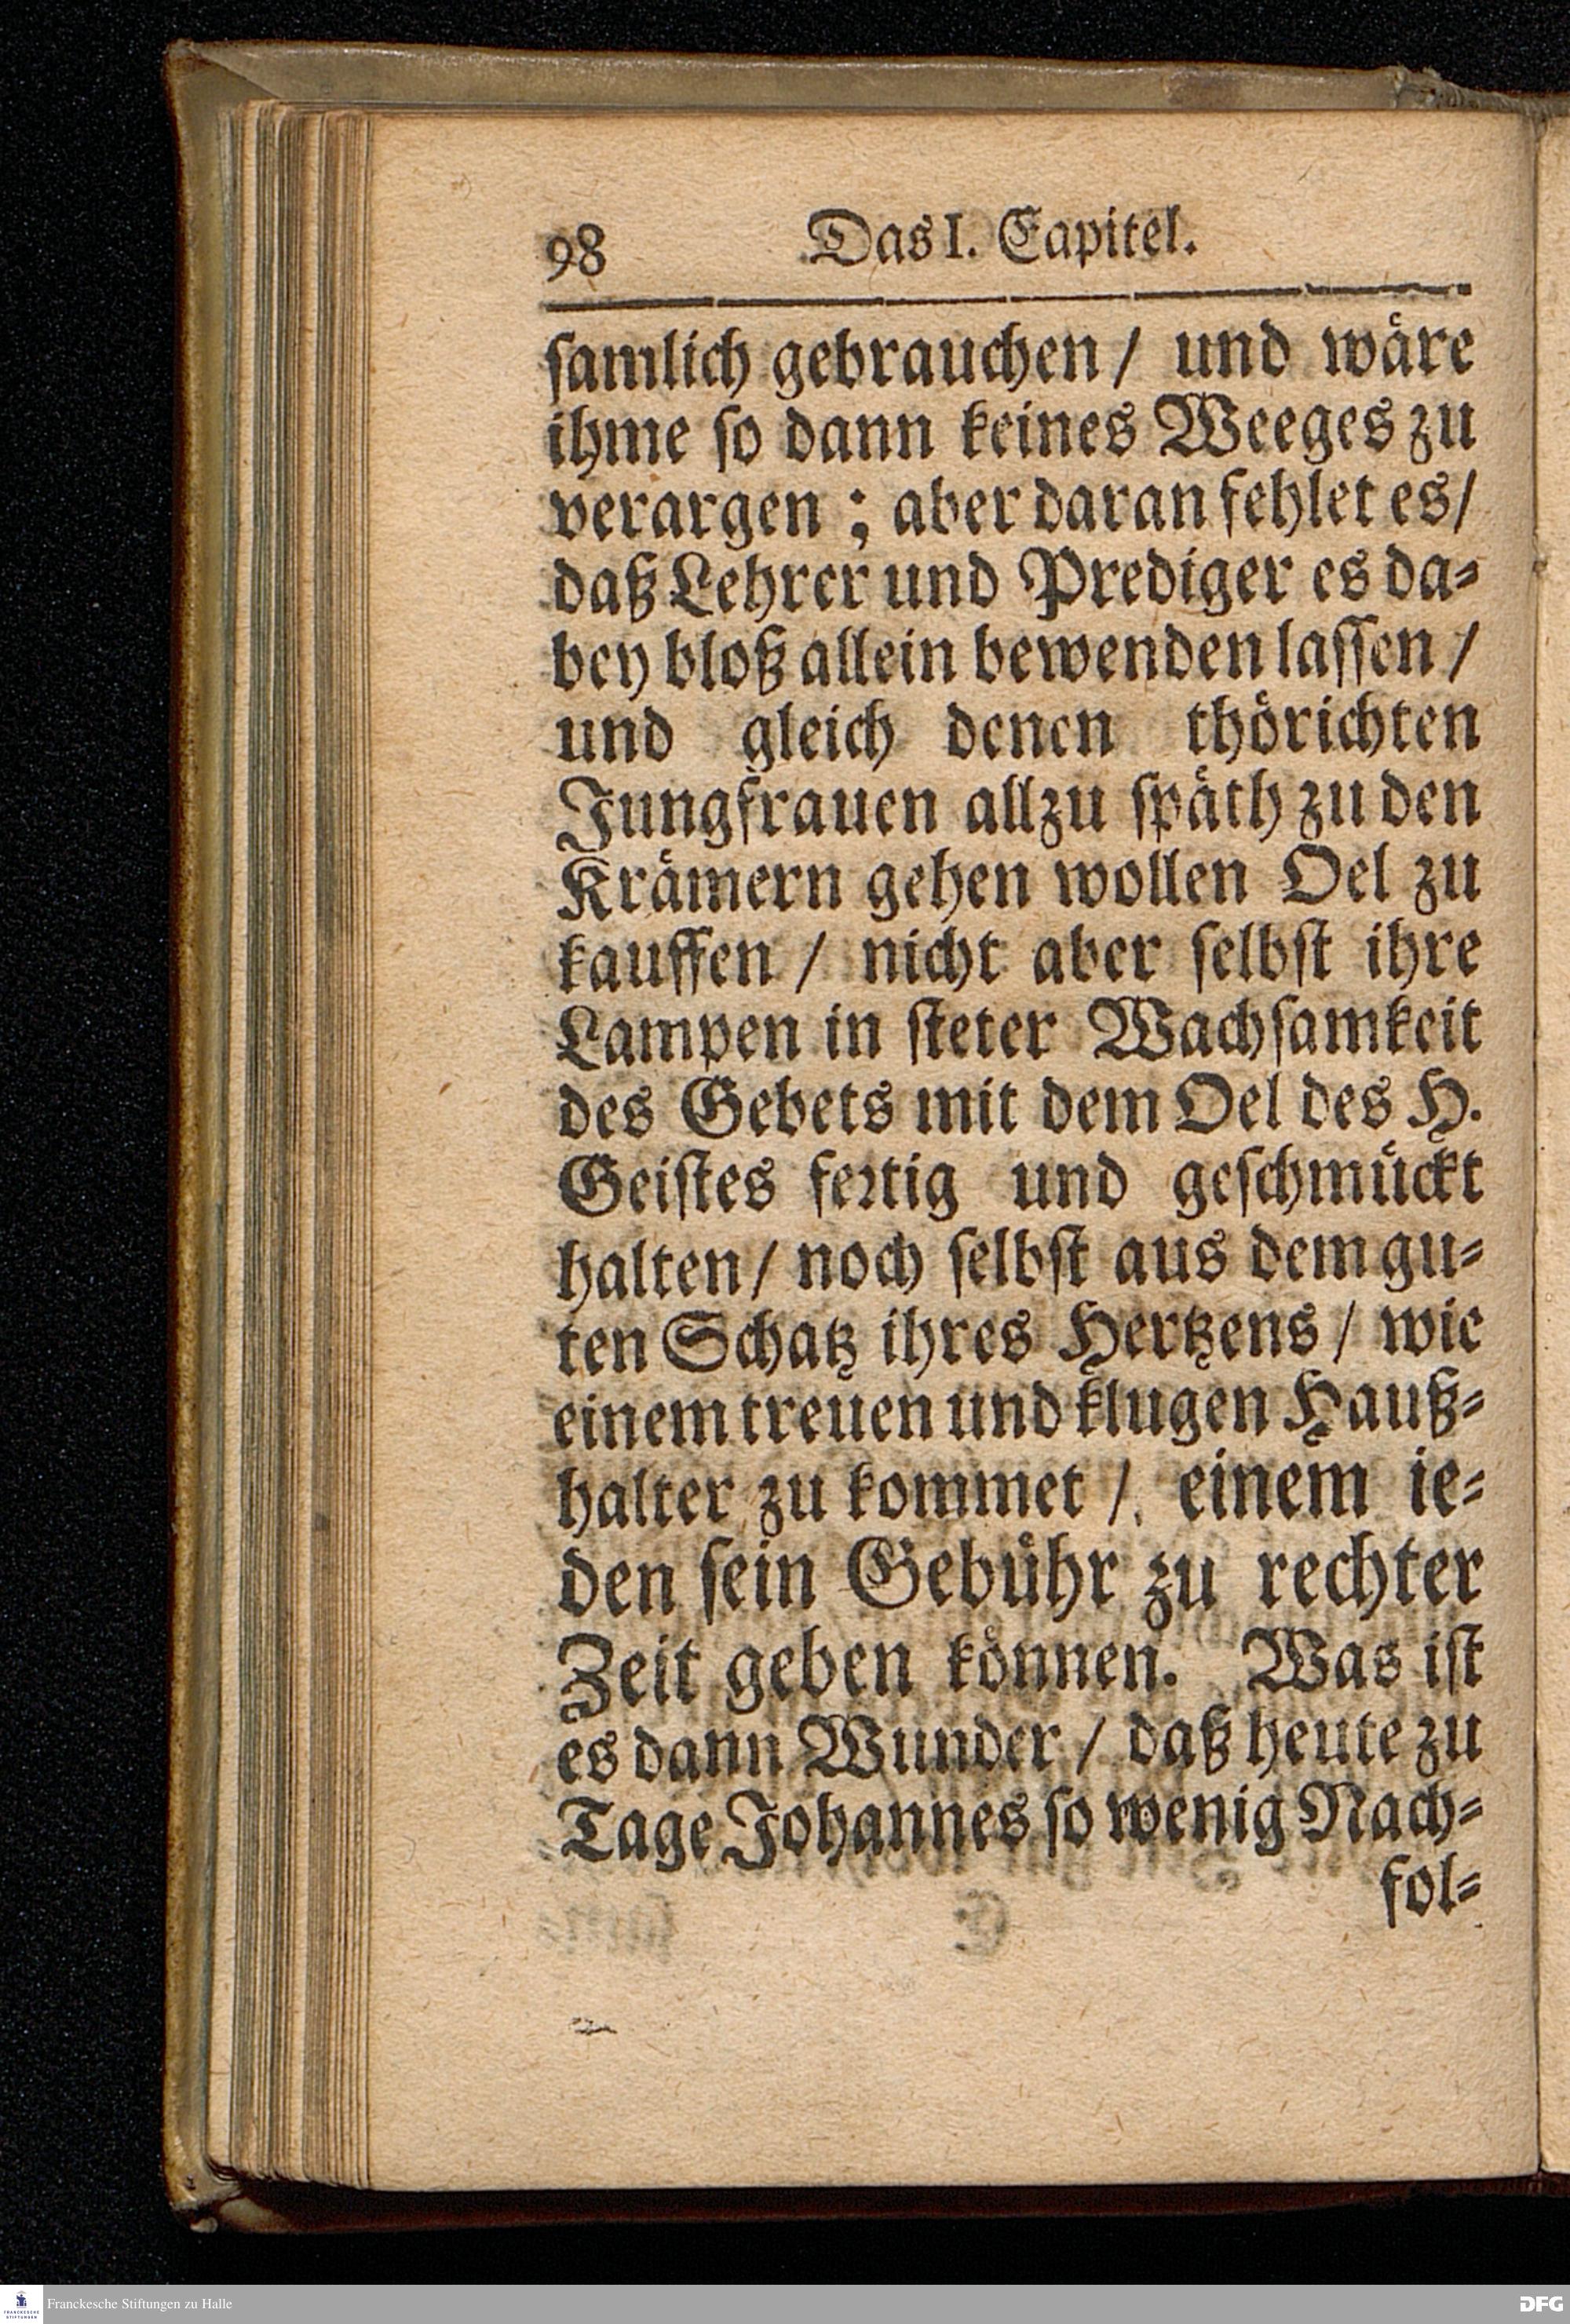 98 Das I. Capitel.
ſamlich gebrauchen / und waͤre
ihme ſo dann keines Weeges zu
verargen ; aber daran fehlet es /
daß Lehrer und Prediger es da⸗
bey bloß allein bewenden laſſen /
und gleich denen thoͤrichten
Jungfrauen allzu ſpaͤth zu den
Kraͤmern gehen wollen Oel zu
kauffen / nicht aber ſelbſt ihre
Lampen in ſteter Wachſamkeit
des Gebets mit dem Oel des H.
Geiſtes feꝛtig und geſchmuͤckt
halten / noch ſelbſt aus dem gu⸗
ten Schatz ihres Hertzens / wie
einem treuen und klugen Hauß⸗
halter zu kommet / einem ie⸗
den ſein Gebuͤhr zu rechter
Zeit geben koͤnnen. Was iſt
es dann Wunder / daß heute zu
Tage Johannes ſo wenig Nach⸗
fol⸗
FRANCKESCHE STIFTUNGEN
Franckesche Stiftungen zu Halle
DFG